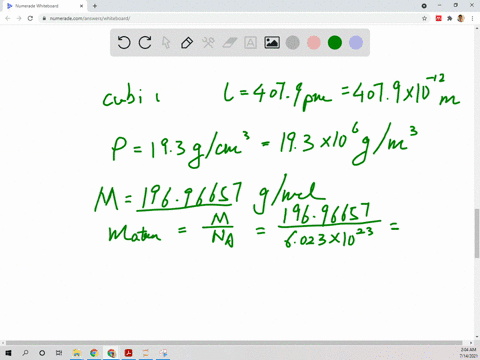 Numerade Whiteboard
numerade.com/answers/whiteboard/
cubi c l = 407.9 pm = 407.9 × 10⁻¹² m
ρ = 19.3 g/cm³ = 19.3 × 10⁶ g/m³
M = 196.96657 g/mol
m atom = M / N_A = 196.96657 / 6.023 × 10²³ =
3:04 AM
7/14/2021